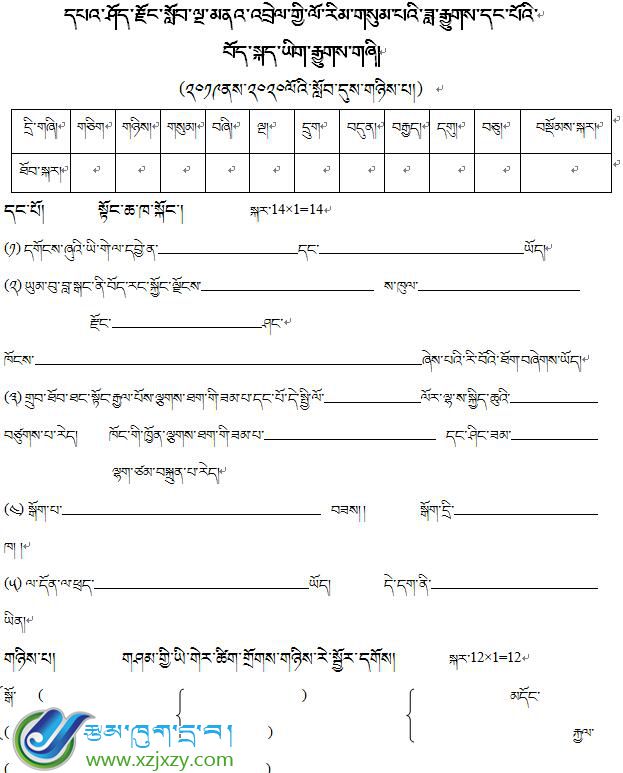 དཔའ་ཤོད་རྫོང་སློབ་ལྔ་མནའ་འབྲེལ་གྱི་ལོ་རིམ་གསུམ་པའི་ཟླ་རྒྱུགས་དང་པོའི་
བོད་སྐད་ཡིག་རྒྱུགས་གཞི།
(༢༠༡༩ནས་༢༠༢༠ལོའི་སློབ་དུས་གཉིས་པ།)
དྲི་གཞི། གཅིག གཉིས། གསུམ། བཞི། ལྔ། དྲུག བདུན། བརྒྱད། དགུ། བཅུ། བསྡོམས་སྐར།
ཐོབ་སྐར།
དང་པོ། སྟོང་ཆ་ཁ་སྐོང་། སྐར་14×1=14
(༡) དགོངས་ཞུའི་ཡི་གེ་ལ་དབྱེ་ན་ དང་ ཡོད།
(༢) ཡུམ་བུ་བླ་སྒང་ནི་བོད་རང་སྐྱོང་ལྗོངས་ ས་ཁུལ་
རྫོང་ ཤང་
ཁོངས་ ཞེས་པའི་རི་བོའི་ཐོག་བཞེགས་ཡོད།
(༣) གྲུབ་ཐོབ་ཐང་སྟོང་རྒྱལ་པོས་ལྕགས་ཐག་གི་ཟམ་པ་དང་པོ་དེ་སྤྱི་ལོ་ ལོར་ལྷ་ས་སྐྱིད་ཆུའི་
བཙུགས་པ་རེད། ཁོང་གི་ཁྱོན་ལྕགས་ཐག་གི་ཟམ་པ་ དང་ཤིང་ཟམ་
ལྷག་ཙམ་བསྐྲུན་པ་རེད།
(༤) སྒོག་པ་ བཟས།། སྒོག་དྲི་
ཁ། །
(༥) ལ་དོན་ལ་ཕྲད་ ཡོད། དེ་དག་ནི་
ཡིན།
གཉིས་པ། གཤམ་གྱི་ཡི་གེར་ཚིག་གྲོགས་གཉིས་རེ་སྦྱོར་དགོས། སྐར་12×1=12
སྒོ་ ( ) མདོང་
( ) རྒྱལ་
(
www.xzjxzy.com